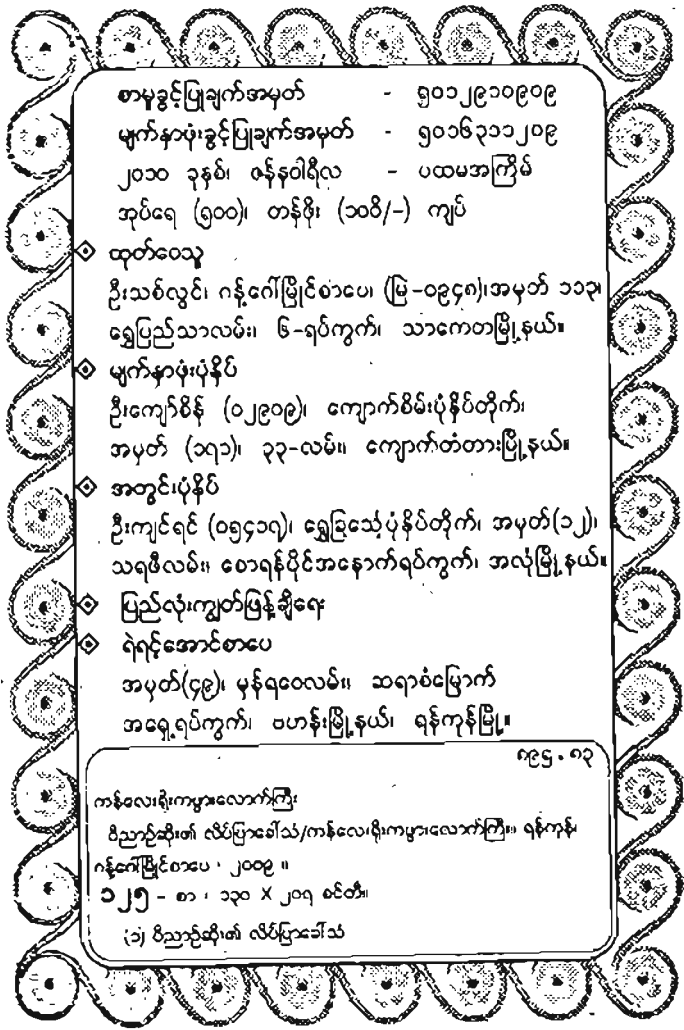 စာမူခွင့်ပြုချက်အမှတ် - ၅၀၁၂၉၁၀၉၀၉
မျက်နှာဖုံးခွင့်ပြုချက်အမှတ် - ၅၀၁၆၃၁၁၂၀၉
၂၀၁၀ ခုနှစ်၊ ဇန်နဝါရီလ - ပထမအကြိမ်
အုပ်ရေ (၅၀၀)၊ တန်ဖိုး (၁၀၀ိ/-) ကျပ်
ထုတ်ဝေသူ
ဦးသစ်လွင်၊ ဂန့်ဂေါ်မြိုင်စာပေ၊ (မြဲ-၀၉၄၈)၊အမှတ် ၁၁၃၊
ရွှေပြည်သာလမ်း၊ ၆-ရပ်ကွက်၊ သာကေတမြို့နယ်။
မျက်နှာဖုံးပုံနှိပ်
ဦးကျော်စိန် (၀၂၉၀၉)၊ ကျောက်စိမ်းပုံနှိပ်တိုက်၊
အမှတ် (၁၇၁)၊ ၃၃-လမ်း။ ကျောက်တံတားမြို့နယ်။
အတွင်းပုံနှိပ်
ဦးကျင်ရင် (၀၅၄၁၇)၊ ရွှေခြင်္သေ့ပုံနှိပ်တိုက်၊ အမှတ်(၁၂)၊
သရဖီလမ်း၊ စောရန်ပိုင်အနောက်ရပ်ကွက်၊ အလုံမြို့နယ်။
ပြည်လုံးကျွတ်ဖြန့်ချိရေး
ရဲရင့်အောင်စာပေ
အမှတ်(၄၉)၊ မှန်ရဝေလမ်း၊ ဆရာစံမြောက်
အရှေ့ရပ်ကွက်၊ ဗဟန်းမြို့နယ်၊ ရန်ကုန်မြို့။
၈၉၄.၈၃
ကန်လေးရိုးကမ္ဘားလောက်ကြီး
ပိညာဉ်ဆိုး၏ လိပ်ပြာခေါ်သံ/ကန်လေးရိုးကမ္ဘားလောက်ကြီး။ ရန်ကုန်၊
ဂန့်ဂေါ်မြိုင်စာပေ ၊ ၂၀၀၉ ။
၁၂၅ - စာ ၊ ၁၃၀ X ၂၀၇ စင်တီ။
(၁) ပိညာဉ်ဆိုး၏ လိပ်ပြာခေါ်သံ